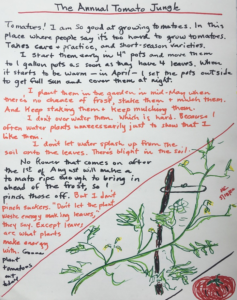 The Annual Tomato Jungle
Tomatoes! I am so good at growing tomatoes. In this
place where people say it's too hard to grow tomatoes.
Takes care + practice, and short-season varieties.
I start them early in 4" pots and move them
to 1 gallon pots as soon as they have 4 leaves. When
it starts to be warm - in April - I set the pots outside
to get full sun and cover them at night.
I plant them in the garden in mid-May when
there's no chance of frost, stake them + mulch them.
And keep staking them + keep mulching them.
I don't over water them. Which is hard. Because I
often water plants unnecessarily just to show that I
like them.
I don't let water splash up from the
soil onto the leaves. There's blight in the soil!
No flower that comes on after
the 1st of August will make a
tomato ripe enough to bring in
ahead of the frost, so I
pinch those off. But I don't
pinch suckers. "Don't let the plant
waste energy making leaves,"
they say. Except leaves
are what plants
make energy
with.
plant
tomatoes